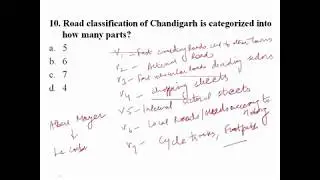 10. Road classification of Chandigarh is categorized into
how many parts?
a. 5
b. 6
c. 7
d. 4
V1 - Fast roads to other towns
V2 - Arterial roads
V3 - Fast vehicular roads dividing sectors
V4 - shopping streets
V5 - Internal sectoral streets
V6 - Local Roads / access
V7 - Cycle tracks, Footpaths
Albert Mayer
Le Corbu